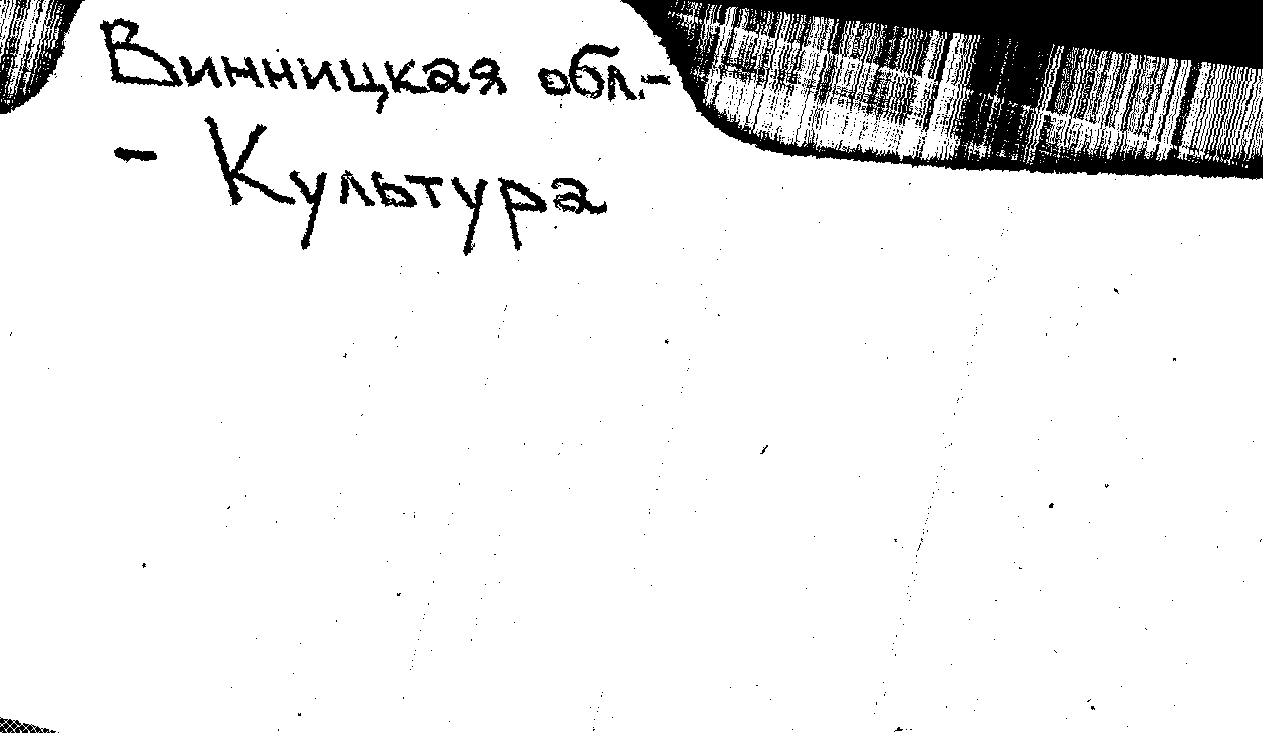 Винницкая обл.-
- Культура